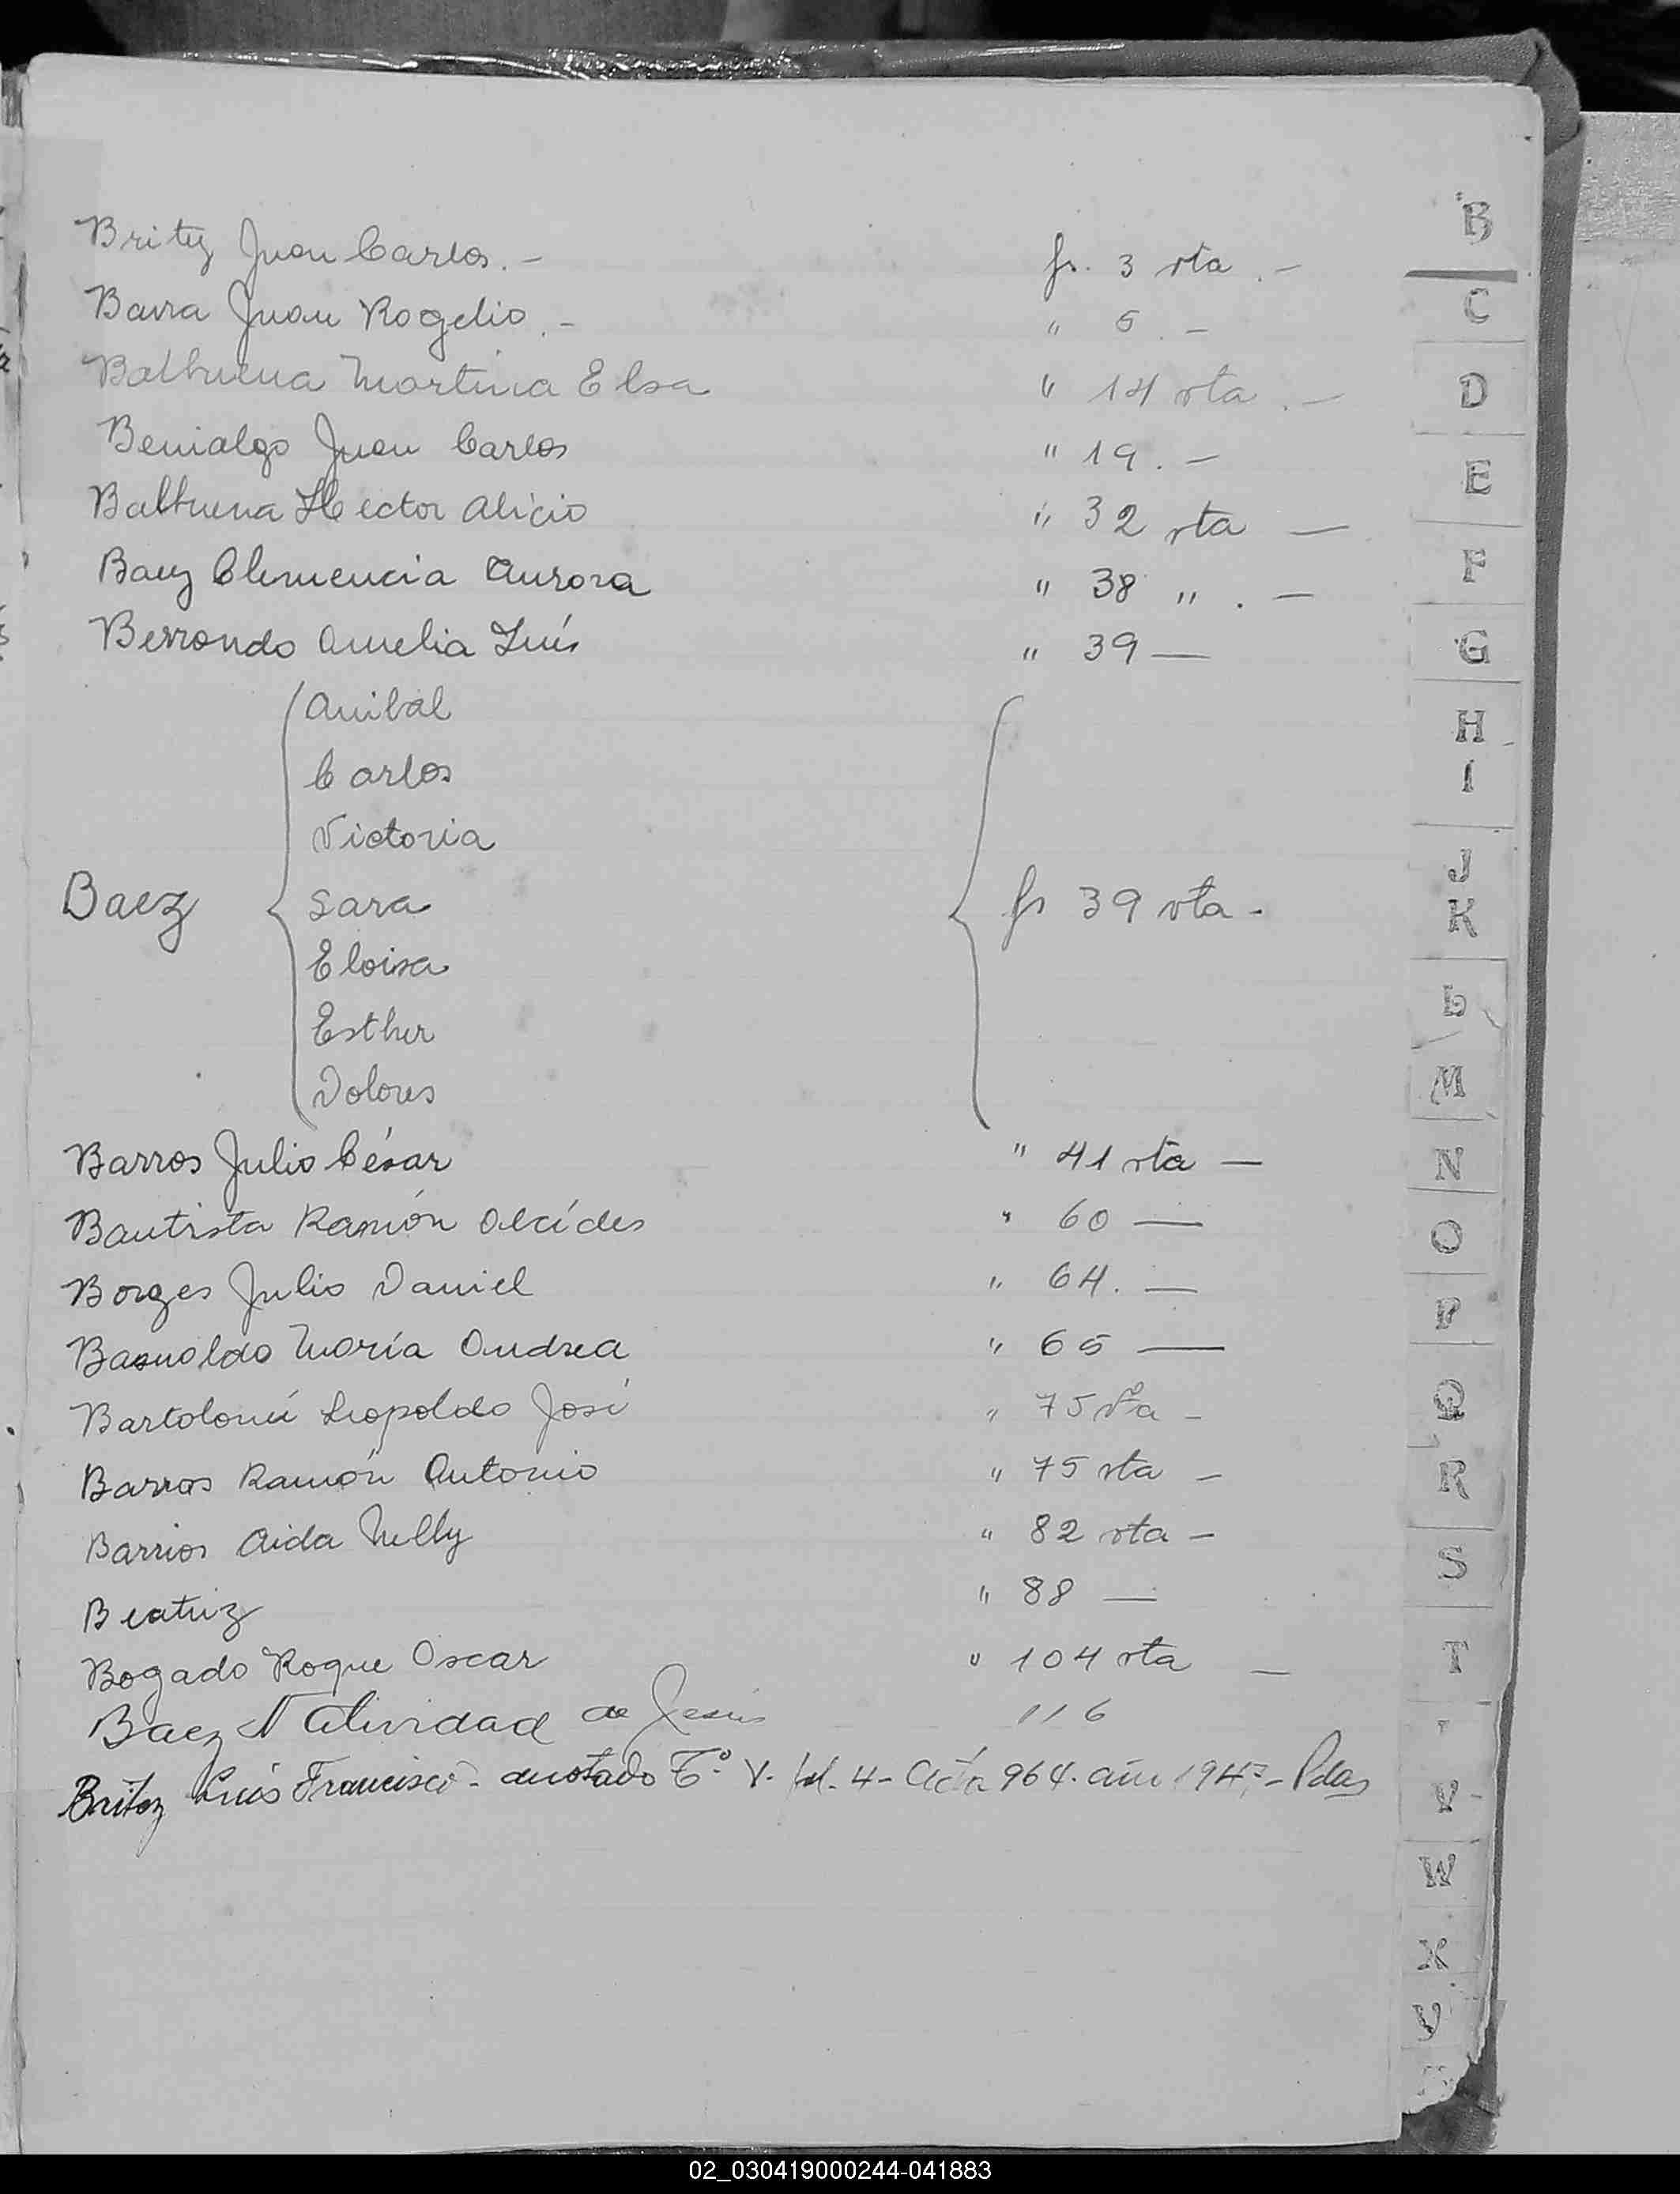 Britez Juan Carlos. - fs. 3 vta . -
Barra Juan Rogelio . - " 5 . -
Balbuena Martina Elsa " 14 vta . -
Benialgo Juan Carlos " 19 . -
Balbuena Hector Alicio " 32 vta -
Baez Clemencia Aurora " 38 " . -
Berrondo Amelia Luís " 39 -
Anibal
Carlos
Victoria
Baez Sara fs 39 vta -
Eloisa
Esther
Dolores
Barros Julio César " 41 vta -
Bautista Ramón Alcídes " 60 -
Borges Julio Daniel " 64. -
Basualdo María Andrea " 65 -
Bartolomé Leopoldo José " 75 vta -
Barros Ramón Antonio " 75 vta -
Barrios Aida Nelly " 82 vta -
Beatriz " 88 -
Bogado Roque Oscar " 104 vta -
Baez Natividad de Jesús 116
Britez Luis Francisco - anotado Tº V. fol. 4 - Acta 964. año - Pdas
B
C
D
E
F
G
H
I
J
K
L
M
N
O
P
Q
R
S
T
V
W
X
Y
02_030419000244-041883